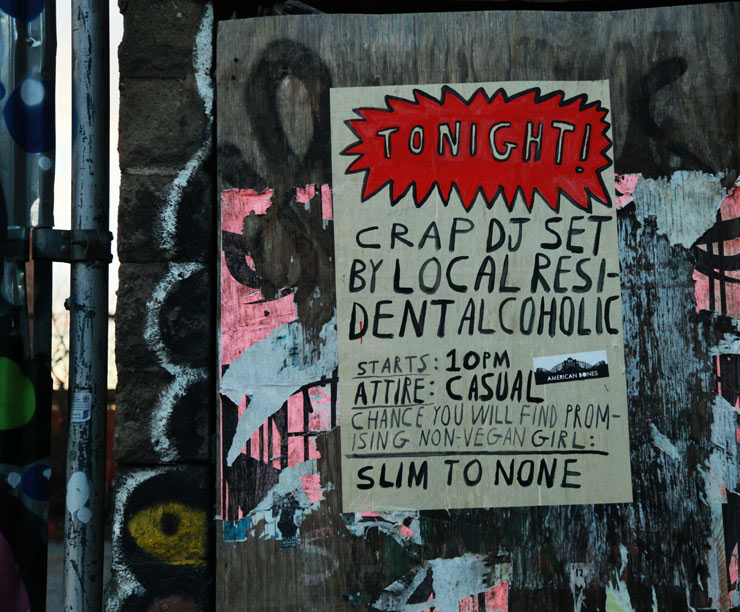 TONIGHT!
CRAP DJ SET
BY LOCAL RESI-
DENT ALCOHOLIC
STARTS: 10PM
ATTIRE: CASUAL
AMERICAN BONES
CHANCE YOU WILL FIND PROM-
ISING NON-VEGAN GIRL:
SLIM TO NONE